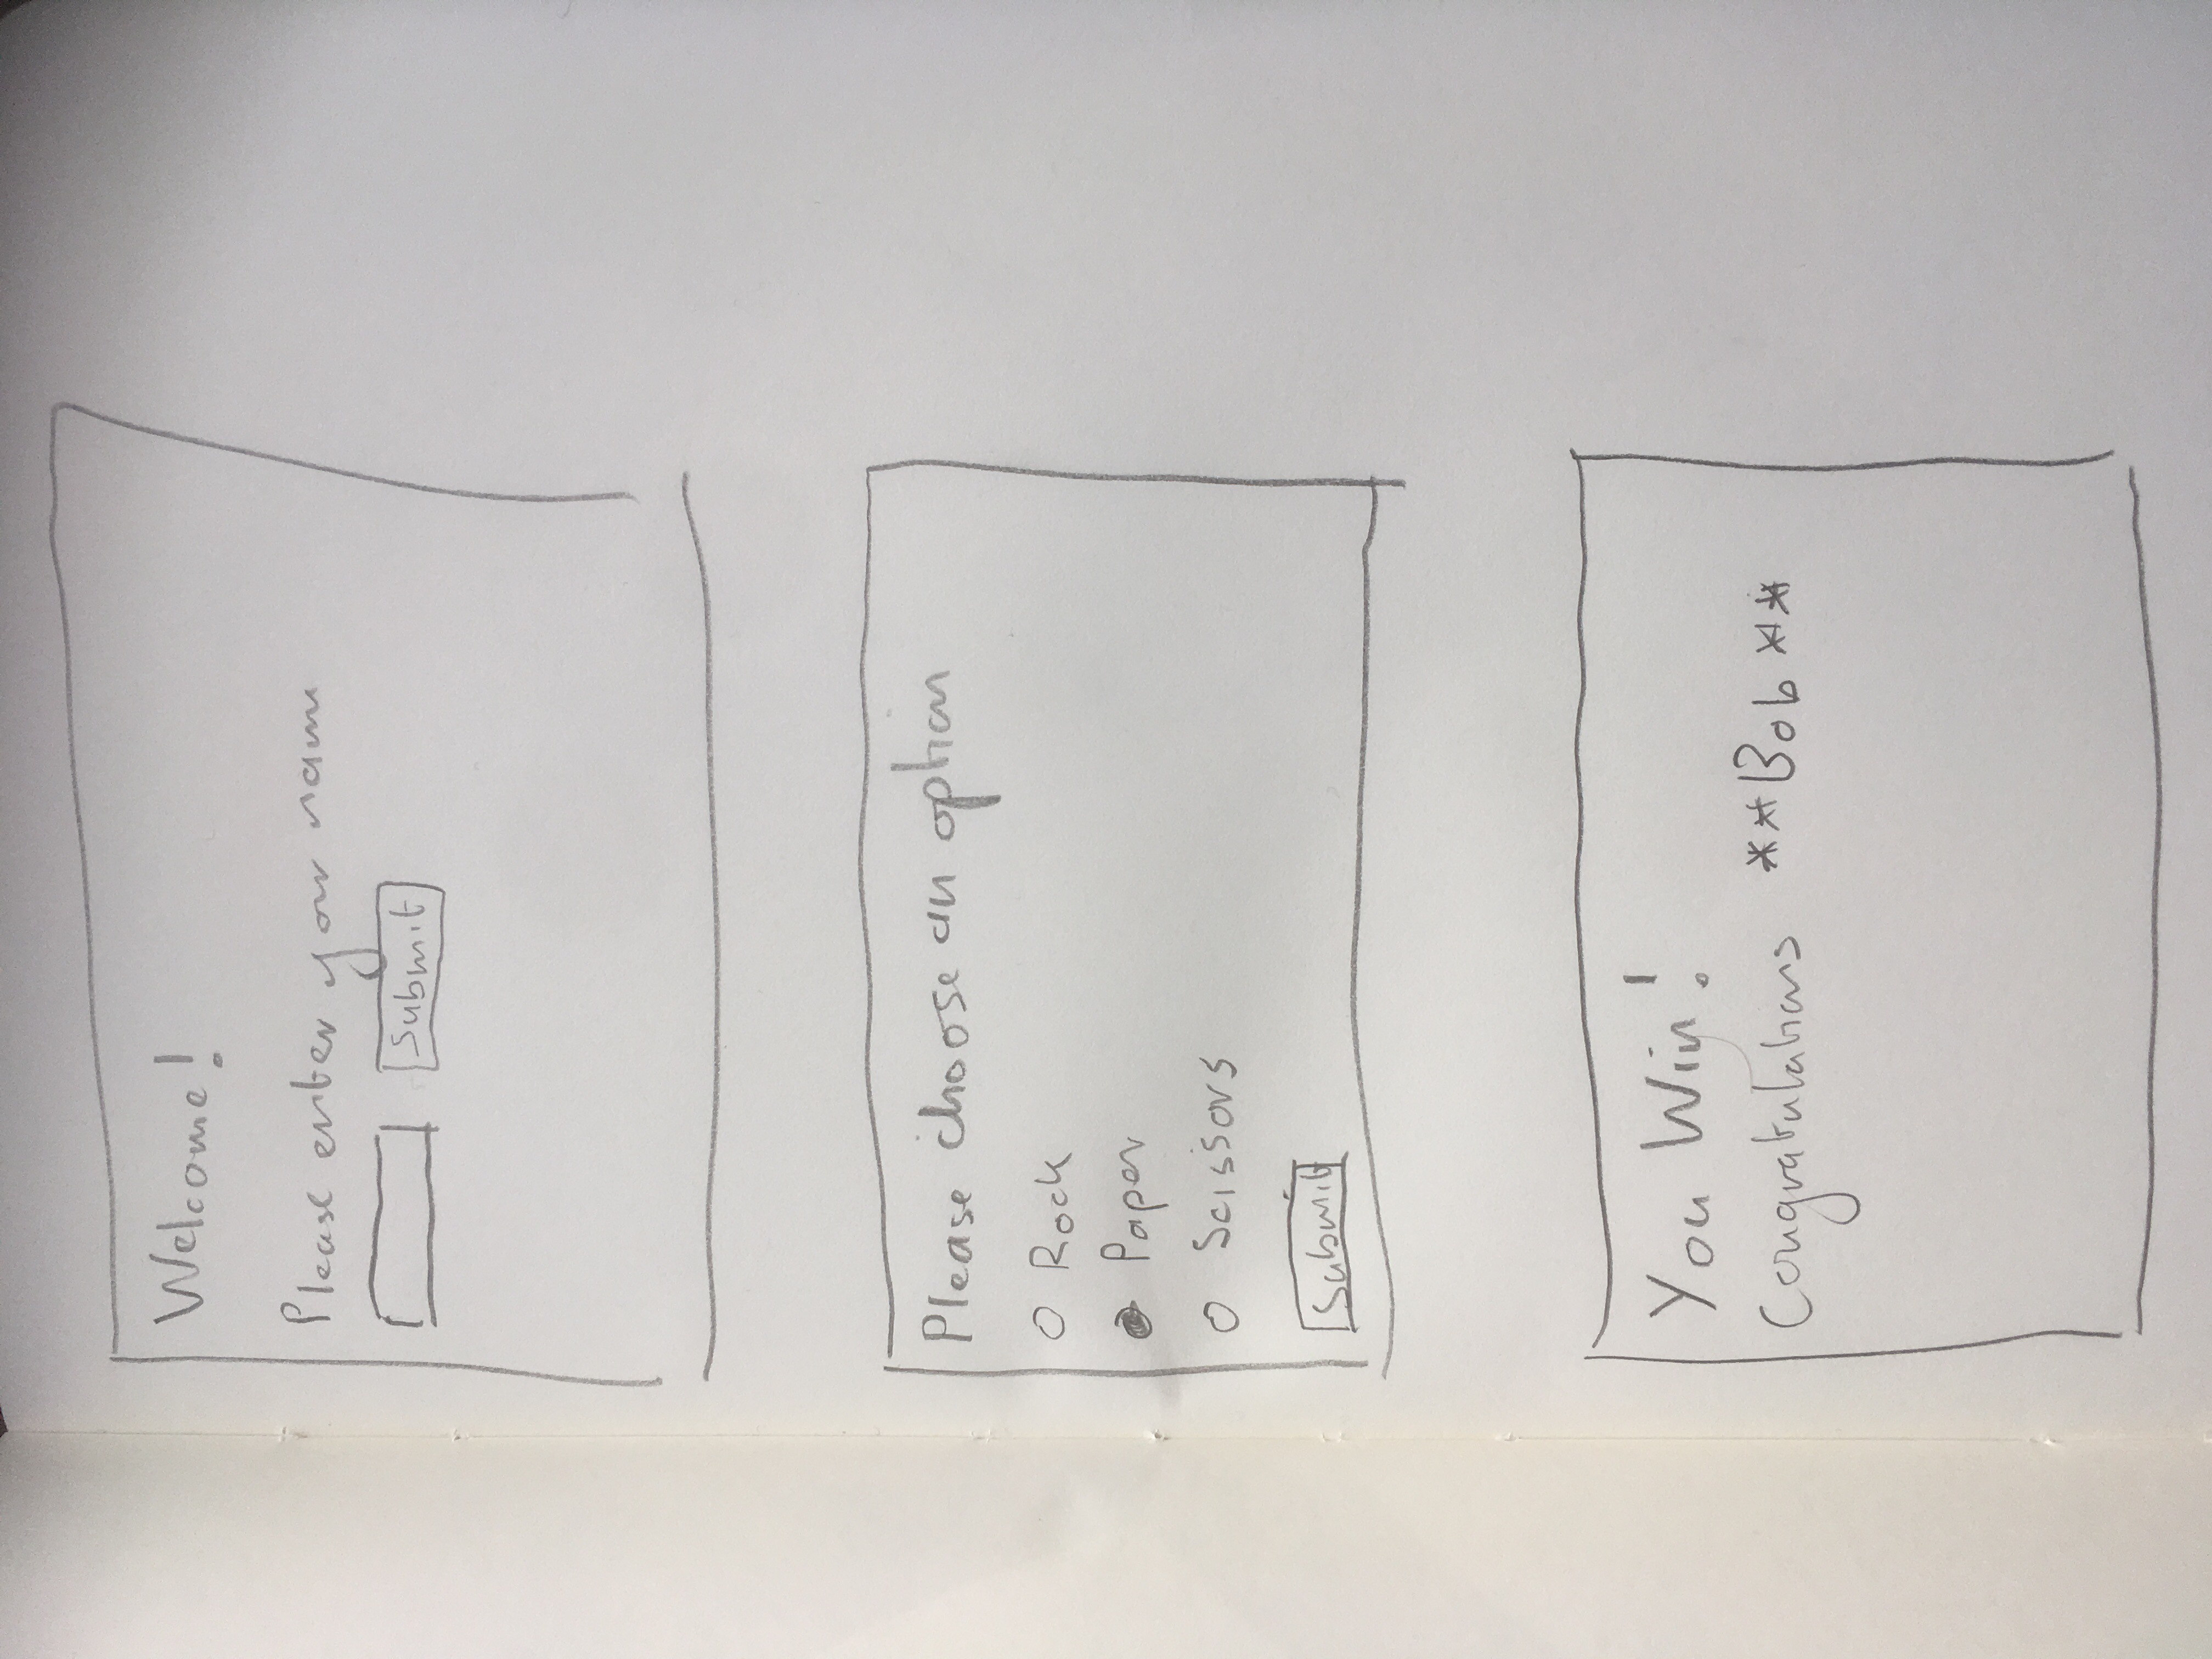 Welcome!
Please enter your name
Submit
Please choose an option
Rock
Paper
Scissors
Submit
You Win!
Congratulations **Bob**